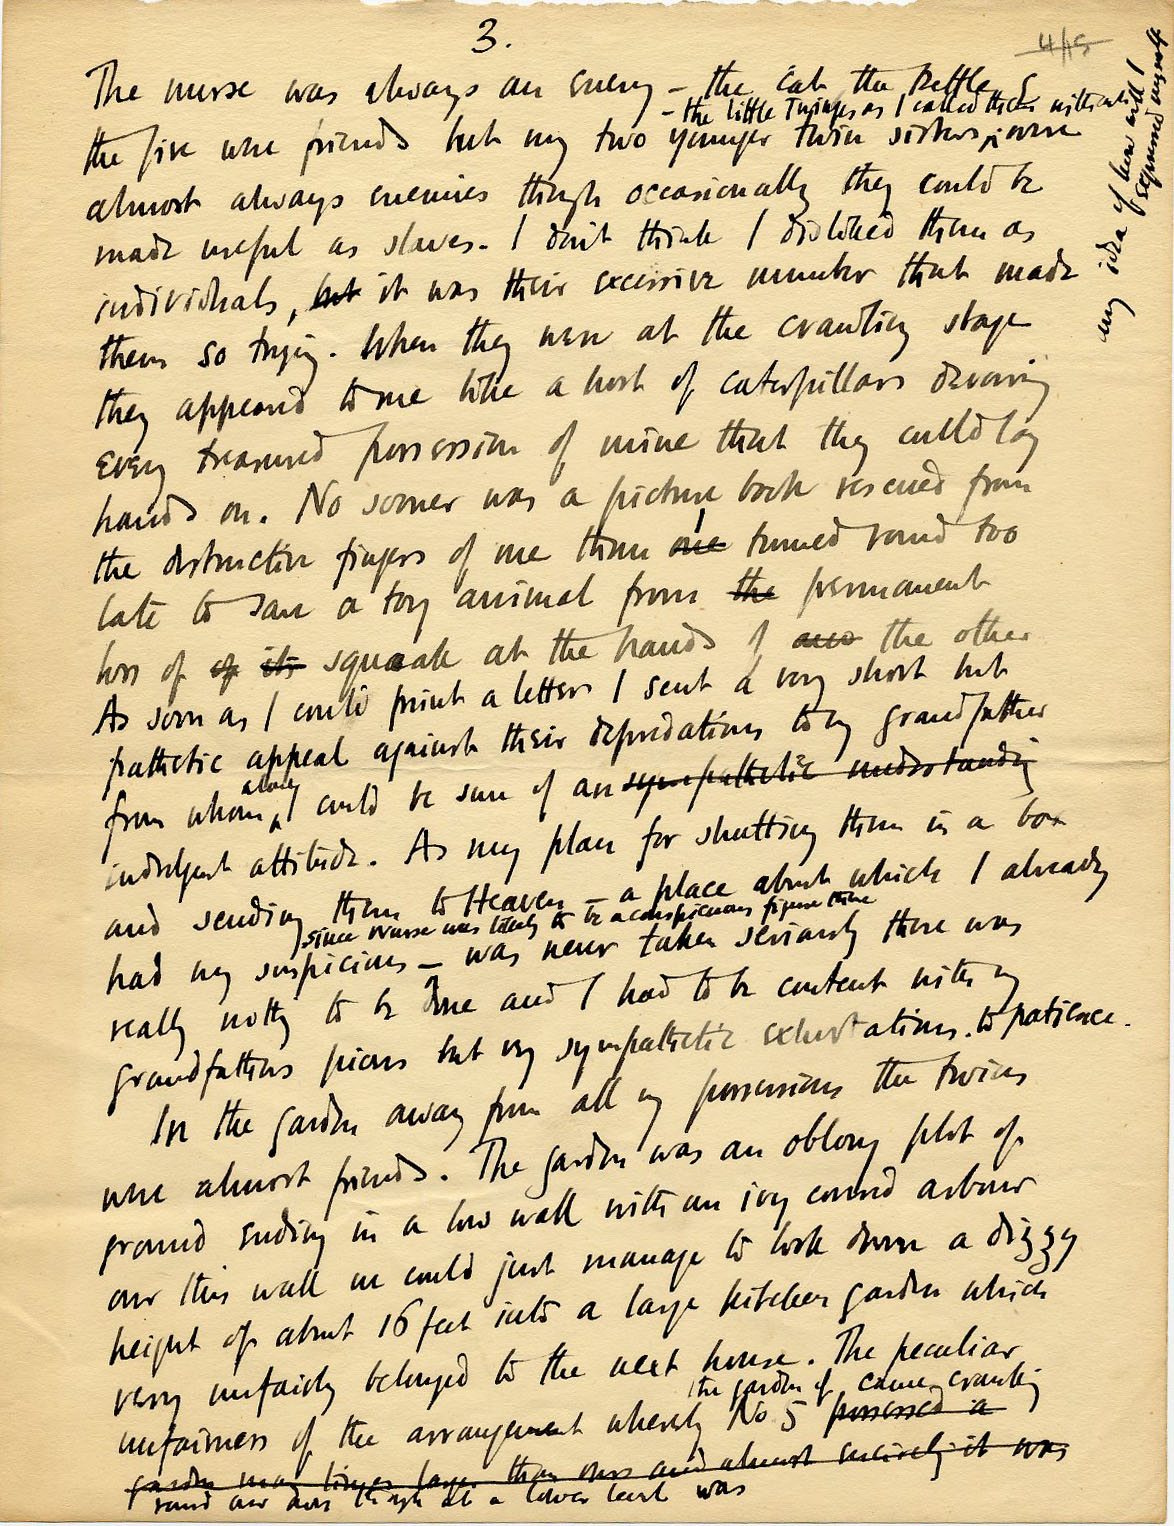 3.
4/15
The nurse was always an enemy – the cat, the kettle &
– the little Twinges as I called them with
my idea of how well I
expressed myself
the fire were friends but my two younger twin sisters, were
almost always enemies though occasionally they could be
made useful as slaves. I don't think I disliked them as
individuals, but it was their excessive number that made
them so trying. When they were at the crawling stage
they appeared to me like a host of caterpillars devouring
every treasured possession of mine that they could lay
hands on. No sooner was a picture book rescued from
the destructive fingers of one than one I turned round too
late to save a toy animal from the permanent
loss of of its squeak at the hands of and the other
As soon as I could print a letter I sent a very short but
pathetic appeal against their depredations to my grandfather
from whom alone I could be sure of an sympathetic understanding
indulgent attitude. As my plan for shutting them in a box
and sending them to Heaven – a place about which I already
since Nurse was likely to be a conspicuous figure there
had my suspicions – was never taken seriously there was
really nothg to be done and I had to be content with my
grandfathers pious but my sympathetic exhortations. to patience.
In the garden away from all my possessions the twins
were almost friends. The garden was an oblong plot of
ground ending in a low wall with an ivy covered arbour
over this wall we could just manage to look down a dizzy
height of about 16 feet into a large kitchen garden which
very unfairly belonged to the next house. The peculiar
the garden of came crawling
unfairness of the arrangement whereby No 5 possessed a
garden many times larger than ours and almost entirely it was
round our ours though at a lower level was